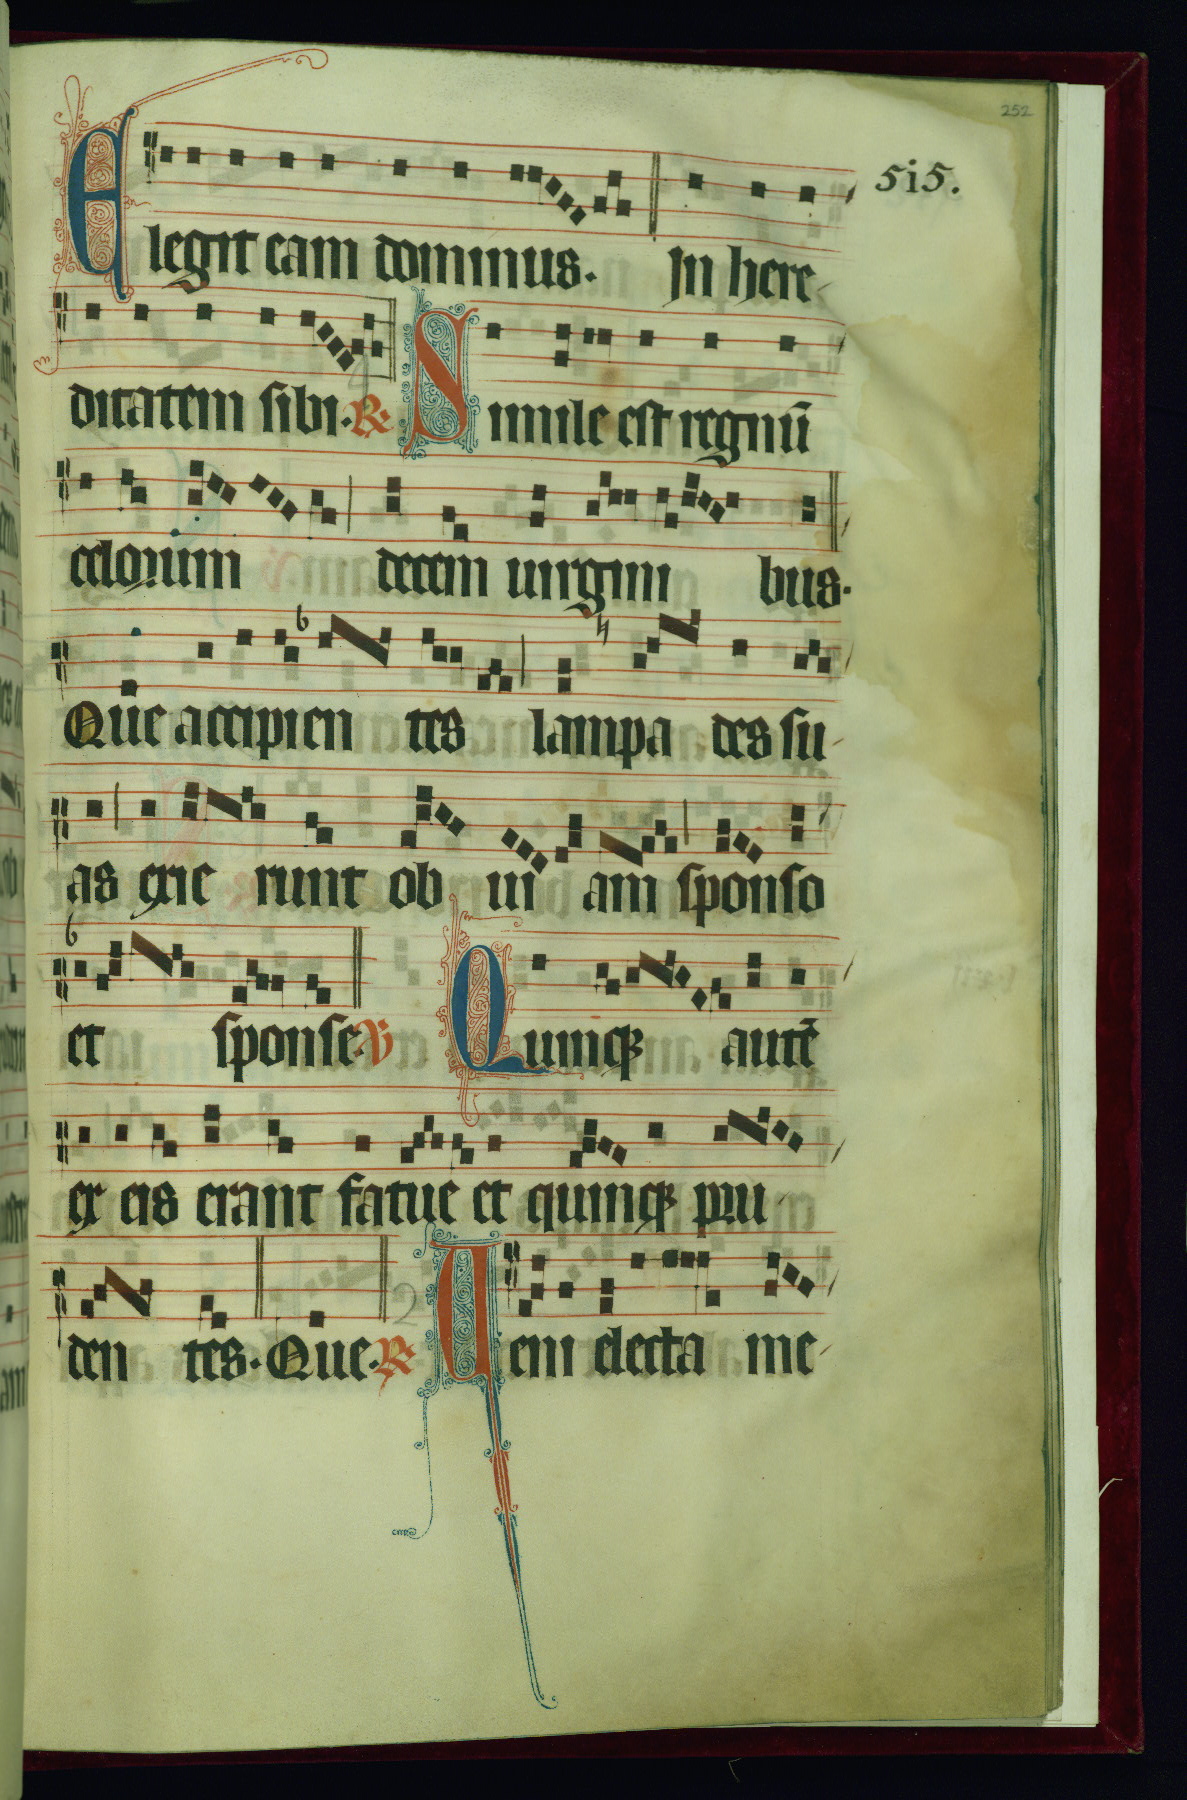 252
515.
Elegit eam dominus. In here
ditatem sibi. R. Simile est regnū
celorum decem uirgini bus.
Que accipien tes lampa des su
as exie runt ob ui am sponso
et sponse. V Quinqȝ autē
ex eis erant fatue et quinqȝ pru
den tes. Que. R 2 Ueni electa me